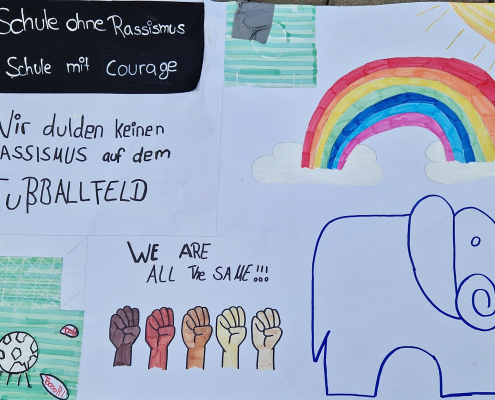 Schule ohne Rassismus
Schule mit Courage
Wir dulden keinen
RASSISMUS auf dem
FUßBALLFELD
WE ARE
ALL THE SAME!!!